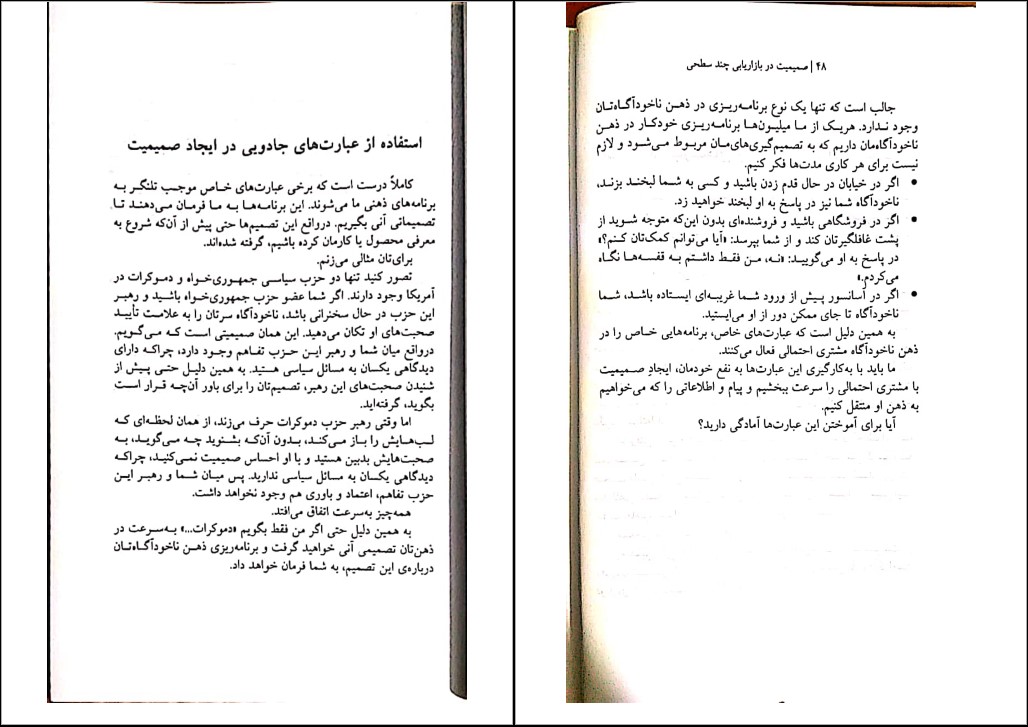 ۴۸ | صمیمیت در بازاریابی چند سطحی
جالب است که تنها یک نوع برنامه‌ریزی در ذهن ناخودآگاه‌تان
وجود ندارد. هریک از ما میلیون‌ها برنامه‌ریزی خودکار در ذهن
ناخودآگاه‌مان داریم که به تصمیم‌گیری‌های‌مان مربوط می‌شود و لازم
نیست برای هر کاری مدت‌ها فکر کنیم.
• اگر در خیابان در حال قدم زدن باشید و کسی به شما لبخند بزند،
ناخودآگاه شما نیز در پاسخ به او لبخند خواهید زد.
• اگر در فروشگاهی باشید و فروشنده‌ای بدون این‌که متوجه شوید از
پشت غافلگیرتان کند و از شما بپرسد: «آیا می‌توانم کمک‌تان کنم؟»
در پاسخ به او می‌گویید: «نه، من فقط داشتم به قفسه‌ها نگاه
می‌کردم.»
• اگر در آسانسور پیش از ورود شما غریبه‌ای ایستاده باشد، شما
ناخودآگاه تا جای ممکن دور از او می‌ایستید.
به همین دلیل است که عبارت‌های خاص، برنامه‌هایی خاص را در
ذهن ناخودآگاه مشتری احتمالی فعال می‌کنند.
ما باید با به‌کارگیری این عبارت‌ها به نفع خودمان، ایجادِ صمیمیت
با مشتری احتمالی را سرعت ببخشیم و پیام و اطلاعاتی را که می‌خواهیم
به ذهن او منتقل کنیم.
آیا برای آموختن این عبارت‌ها آمادگی دارید؟
استفاده از عبارت‌های جادویی در ایجاد صمیمیت
کاملاً درست است که برخی عبارت‌های خاص موجب تلنگر به
برنامه‌های ذهنی ما می‌شوند. این برنامه‌ها به ما فرمان می‌دهند تا
تصمیماتی آنی بگیریم. درواقع این تصمیم‌ها حتی پیش از آن‌که شروع به
معرفی محصول یا کارمان کرده باشیم، گرفته شده‌اند.
برای‌تان مثالی می‌زنم.
تصور کنید تنها دو حزب سیاسی جمهوری‌خواه و دموکرات در
آمریکا وجود دارند. اگر شما عضو حزب جمهوری‌خواه باشید و رهبر
این حزب در حال سخنرانی باشد، ناخودآگاه سرتان را به علامت تأیید
صحبت‌های او تکان می‌دهید. این همان صمیمیتی است که می‌گویم.
درواقع میان شما و رهبر این حزب تفاهم وجود دارد، چراکه دارای
دیدگاهی یکسان به مسائل سیاسی هستید. به همین دلیل حتی پیش از
شنیدن صحبت‌های این رهبر، تصمیم‌تان را برای باور آن‌چه قرار است
بگوید، گرفته‌اید.
اما وقتی رهبر حزب دموکرات حرف می‌زند، از همان لحظه‌ای که
لب‌هایش را باز می‌کند، بدون آن‌که بشنوید چه می‌گوید، به
صحبت‌هایش بدبین هستید و با او احساس صمیمیت نمی‌کنید، چراکه
دیدگاهی یکسان به مسائل سیاسی ندارید. پس میان شما و رهبر این
حزب تفاهم، اعتماد و باوری هم وجود نخواهد داشت.
همه‌چیز به‌سرعت اتفاق می‌افتد.
به همین دلیل حتی اگر من فقط بگویم «دموکرات...» به‌سرعت در
ذهن‌تان تصمیمی آنی خواهید گرفت و برنامه‌ریزی ذهن ناخودآگاه‌تان
درباره‌ی این تصمیم، به شما فرمان خواهد داد.